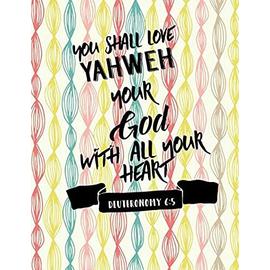 YOU SHALL LOVE
YAHWEH
YOUR
God
WITH ALL YOUR
HEART
DEUTERONOMY 6:5